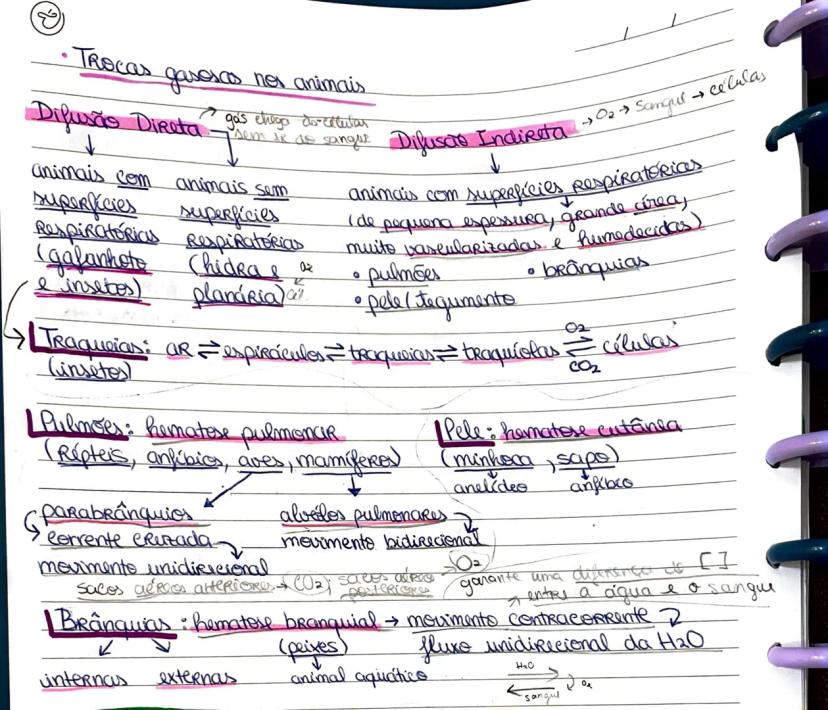 • Trocas gasosas nos animais
Difusão Direta → gás chega às células
sem ir do sangue
Difusão Indireta → O2 → Sangue → células
animais com
superfícies
respiratórias
(gafanhoto
e insetos)
animais sem
superfícies
respiratórias
(hidra e
planária)
O2
animais com superfícies respiratórias
(de pequena espessura, grande área,
muito vascularizadas e humedecidas)
• pulmões • brânquias
• pele (tegumento
Traqueias: ar ⇌ espiráculos ⇌ traqueias ⇌ traquíolas ⇌ células
O2
CO2
(insetos)
Pulmões: hematose pulmonar
(Répteis, anfíbios, aves, mamíferos)
Pele: hematose cutânea
(minhoca, sapo)
anelídeo anfíbio
parabrônquios
corrente cruzada
movimento unidirecional
alvéolos pulmonares
movimento bidirecional
sacos aéreos anteriores → CO2; sacos aéreos
posteriores → O2
garante uma diferença de [ ]
entre a água e o sangue
Brânquias: hematose branquial → movimento contracorrente
(peixes) fluxo unidirecional da H2O
internas externas animal aquático
H2O
sangue O2